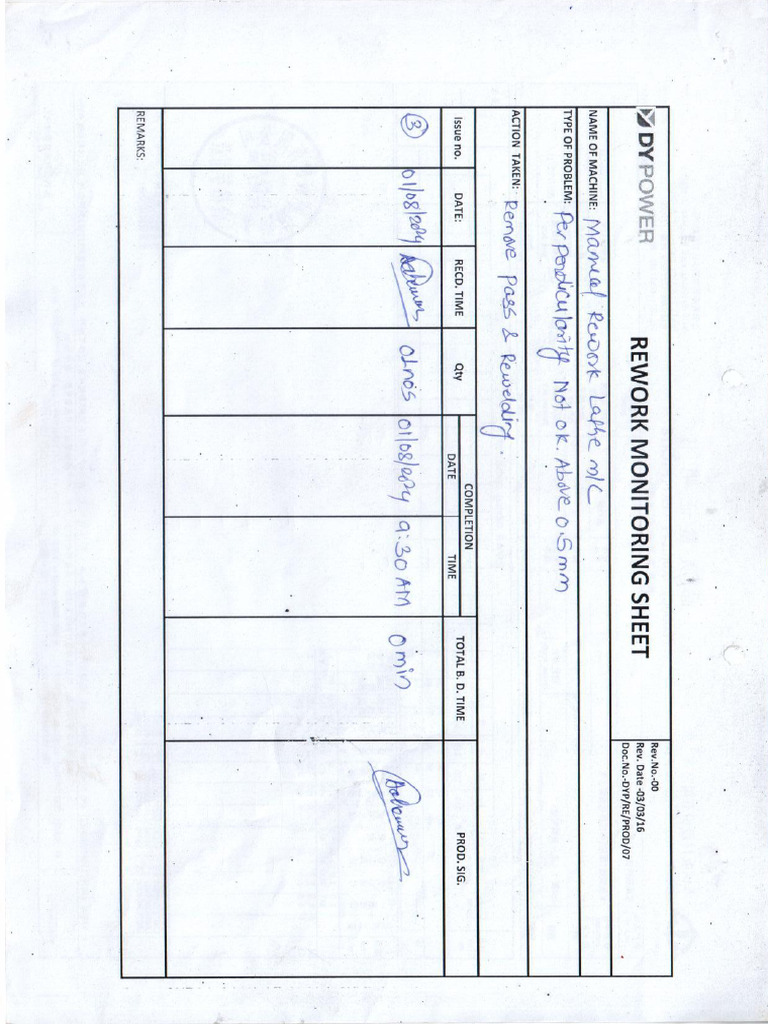 DY POWER
REWORK MONITORING SHEET
Rev.No.-00
Rev. Date -03/03/16
Doc.No.-DYP/RE/PROD/07
NAME OF MACHINE: Manual Rework Lathe m/c
TYPE OF PROBLEM: Perpendicularity Not ok. Above 0.5mm
ACTION TAKEN: Remove Pass & Rewelding.
Issue no. DATE: RECD. TIME Qty COMPLETION TOTAL B. D. TIME PROD. SIG.
DATE TIME
3 01/08/2024 01nos 01/08/2024 9:30 AM 0 min
REMARKS: